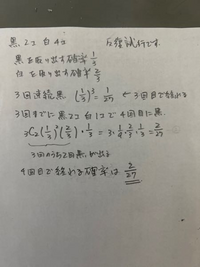 黒 2コ 白 4コ 反復試行です。
黒を取り出す確率 1/3
白を取り出す確率 2/3
3回連続黒 (1/3)³ = 1/27 ← 3回目で終わる
3回までに 黒2コ 白1コで 4回目に黒.
₃C₂(1/3)²(2/3)・1/3 = 3・1/9・2/3・1/3 = 2/27
3回のうち2回黒が出る
4回目で終わる確率は 2/27